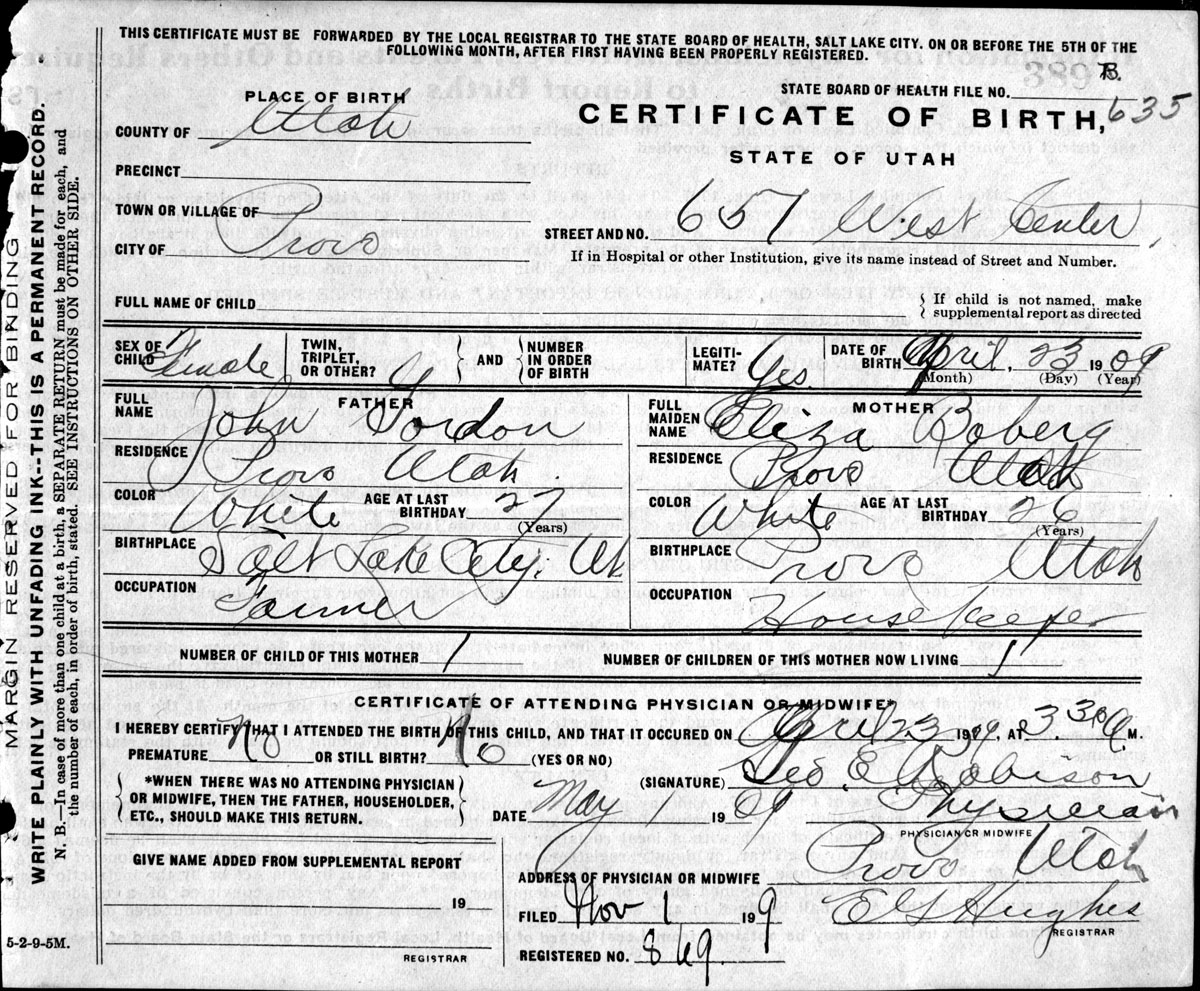 THIS CERTIFICATE MUST BE FORWARDED BY THE LOCAL REGISTRAR TO THE STATE BOARD OF HEALTH, SALT LAKE CITY. ON OR BEFORE THE 5TH OF THE
FOLLOWING MONTH, AFTER FIRST HAVING BEEN PROPERLY REGISTERED.
B.
STATE BOARD OF HEALTH FILE NO.
635
CERTIFICATE OF BIRTH,
STATE OF UTAH
PLACE OF BIRTH
COUNTY OF Utah
PRECINCT
TOWN OR VILLAGE OF Provo
CITY OF
STREET AND NO. 657 West Center,
If in Hospital or other Institution, give its name instead of Street and Number.
FULL NAME OF CHILD
If child is not named, make
supplemental report as directed
SEX OF CHILD Female
TWIN, TRIPLET, OR OTHER? 1 AND NUMBER IN ORDER OF BIRTH
LEGITI- MATE? Yes.
DATE OF BIRTH April, 23 1909
(Month) (Day) (Year)
FATHER
FULL NAME John Gordon
RESIDENCE Provo Utah
COLOR White AGE AT LAST BIRTHDAY 27
(Years)
BIRTHPLACE Salt Lake City. Ut
OCCUPATION Farmer
MOTHER
FULL MAIDEN NAME Eliza Roberg
RESIDENCE Provo Utah
COLOR White AGE AT LAST BIRTHDAY 26
(Years)
BIRTHPLACE Provo Utah
OCCUPATION House keeper
NUMBER OF CHILD OF THIS MOTHER 1 NUMBER OF CHILDREN OF THIS MOTHER NOW LIVING 1
CERTIFICATE OF ATTENDING PHYSICIAN OR MIDWIFE*
I HEREBY CERTIFY THAT I ATTENDED THE BIRTH OF THIS CHILD, AND THAT IT OCCURED ON April 23 1909, AT 3.30 A. M.
PREMATURE No OR STILL BIRTH? No (YES OR NO)
*WHEN THERE WAS NO ATTENDING PHYSICIAN
OR MIDWIFE, THEN THE FATHER, HOUSEHOLDER,
ETC., SHOULD MAKE THIS RETURN.
(SIGNATURE) Geo. E. Robison
DATE May 1909 Physician
PHYSICIAN OR MIDWIFE
GIVE NAME ADDED FROM SUPPLEMENTAL REPORT
19
REGISTRAR
ADDRESS OF PHYSICIAN OR MIDWIFE Provo Utah
FILED Nov 1 199 E G Hughes
REGISTRAR
REGISTERED NO. 869.
5-2-9-5M.
MARGIN RESERVED FOR BINDING
WRITE PLAINLY WITH UNFADING INK--THIS IS A PERMANENT RECORD.
N. B.—In case of more than one child at a birth, a SEPARATE RETURN must be made for each, and
the number of each, in order of birth, stated. SEE INSTRUCTIONS ON OTHER SIDE.